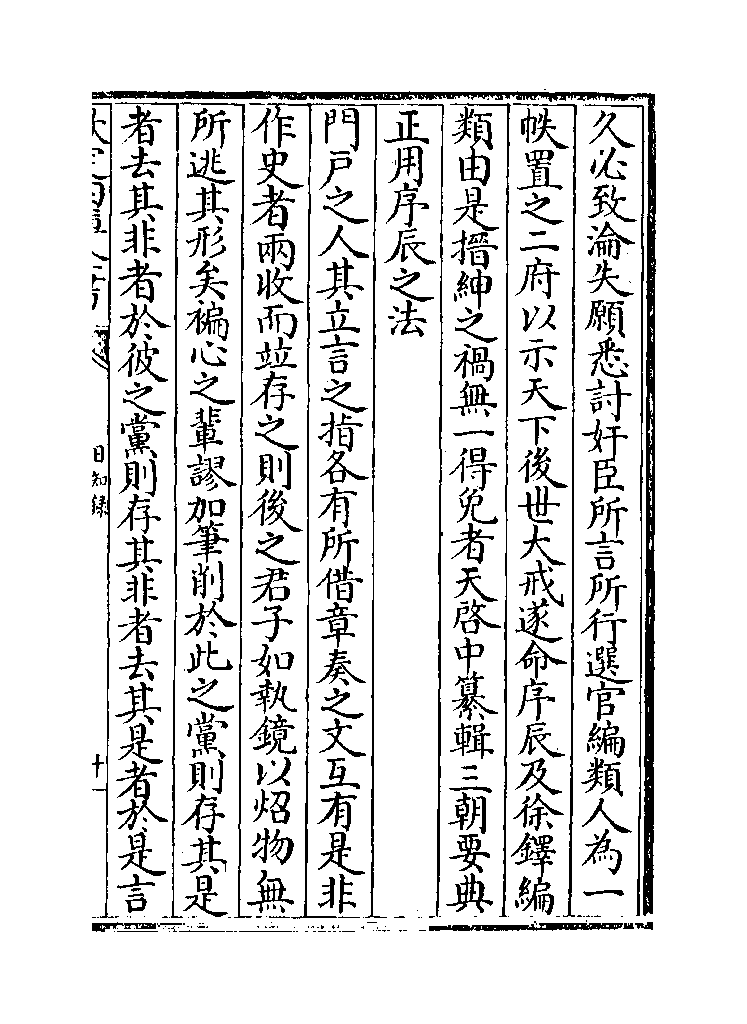 久必致淪失願悉討奸臣所言所行選官編類人為一
帙置之二府以示天下後世大戒遂命序辰及徐鐸編
類由是搢紳之禍無一得免者天啓中纂輯三朝要典
正用序辰之法
門戸之人其立言之指各有所借章奏之文互有是非
作史者兩收而並存之則後之君子如執鏡以炤物無
所逃其形矣褊心之輩謬加筆削於此之黨則存其是
者去其非者於彼之黨則存其非者去其是者於是言
日知録
十一